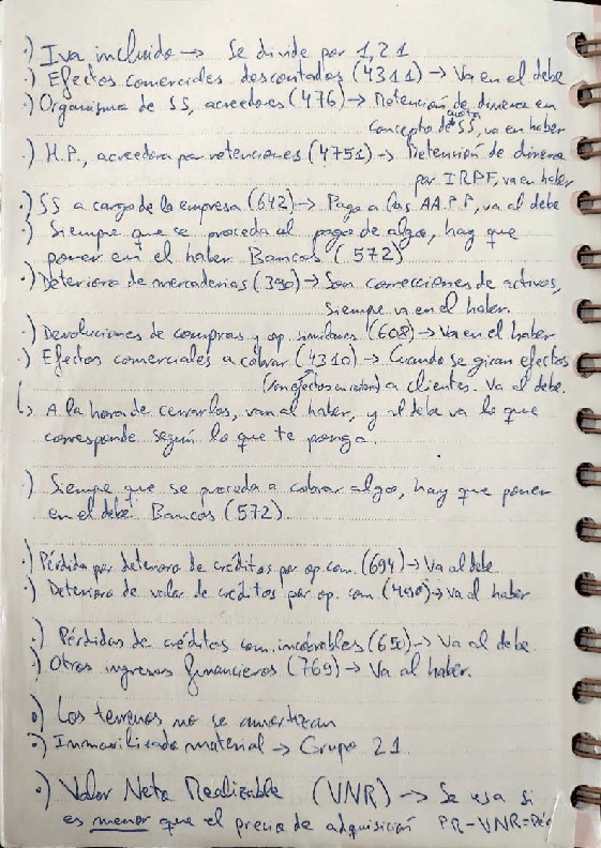 ·) Iva incluido → Se divide por 1,21
·) Efectos comerciales descontados (4311) → Va en el debe
·) Organismo de SS, acreedores (476) → Retención de dinero en
concepto de cuota SS, va en haber
·) H.P., acreedora por retenciones (4751) → Retención de dinero
por IRPF, va en haber
·) SS a cargo de la empresa (642) → Pago a las AA.P.P, va al debe
·) Siempre que se proceda al pago de algo, hay que
poner en el haber Bancos (572)
·) Deterioro de mercaderías (390) → Son correcciones de activos,
siempre va en el haber.
·) Devoluciones de compras y op. similares (608) → Va en el haber
·) Efectos comerciales a cobrar (4310) → Cuando se giran efectos
(son efectos en cartera) a clientes. Va al debe.
↳ A la hora de cerrarlos, van al haber, y al debe va lo que
corresponde según lo que te ponga.
·) Siempre que se proceda a cobrar algo, hay que poner
en el debe Bancos (572)
·) Pérdida por deterioro de créditos por op. com. (694) → Va al debe.
·) Deterioro de valor de créditos por op. com. (490) → va al haber
·) Pérdidas de créditos com. incobrables (650) → Va al debe.
·) Otros ingresos financieros (769) → Va al haber.
·) Los terrenos no se amortizan
·) Inmovilizado material → Grupo 21.
·) Valor Neto Realizable (VNR) → Se usa si
es menor que el precio de adquisición PR-VNR=Pér